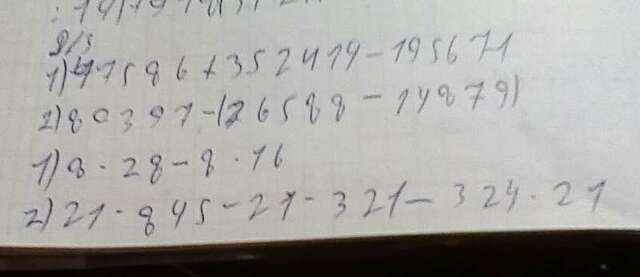 Д/з
1) 47586+352419-195671
2) 80397-(26588-14879)
1) 8·28-8·16
2) 21·845-21·321-324·21